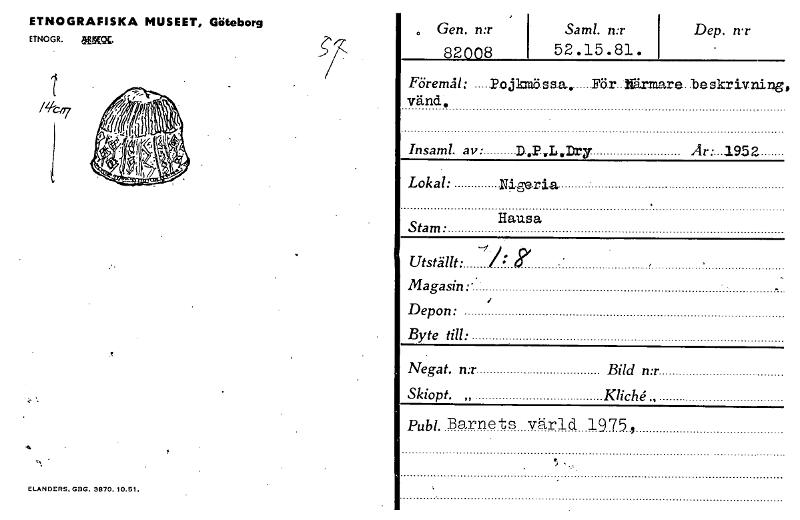 ETNOGRAFISKA MUSEET, Göteborg
ETNOGR.
57.
14cm
ELANDERS, GBG. 3870. 10.51.
Gen. n:r Saml. n:r Dep. n:r
82008 52.15.81.
Föremål: Pojkmössa. För Närmare beskrivning,
vänd.
Insaml. av: D.P.L.Dry År: 1952
Lokal: Nigeria
Stam: Hausa
Utställt: 1:8
Magasin:
Depon:
Byte till:
Negat. n:r Bild n:r
Skiopt. „ Kliché „
Publ. Barnets värld 1975,